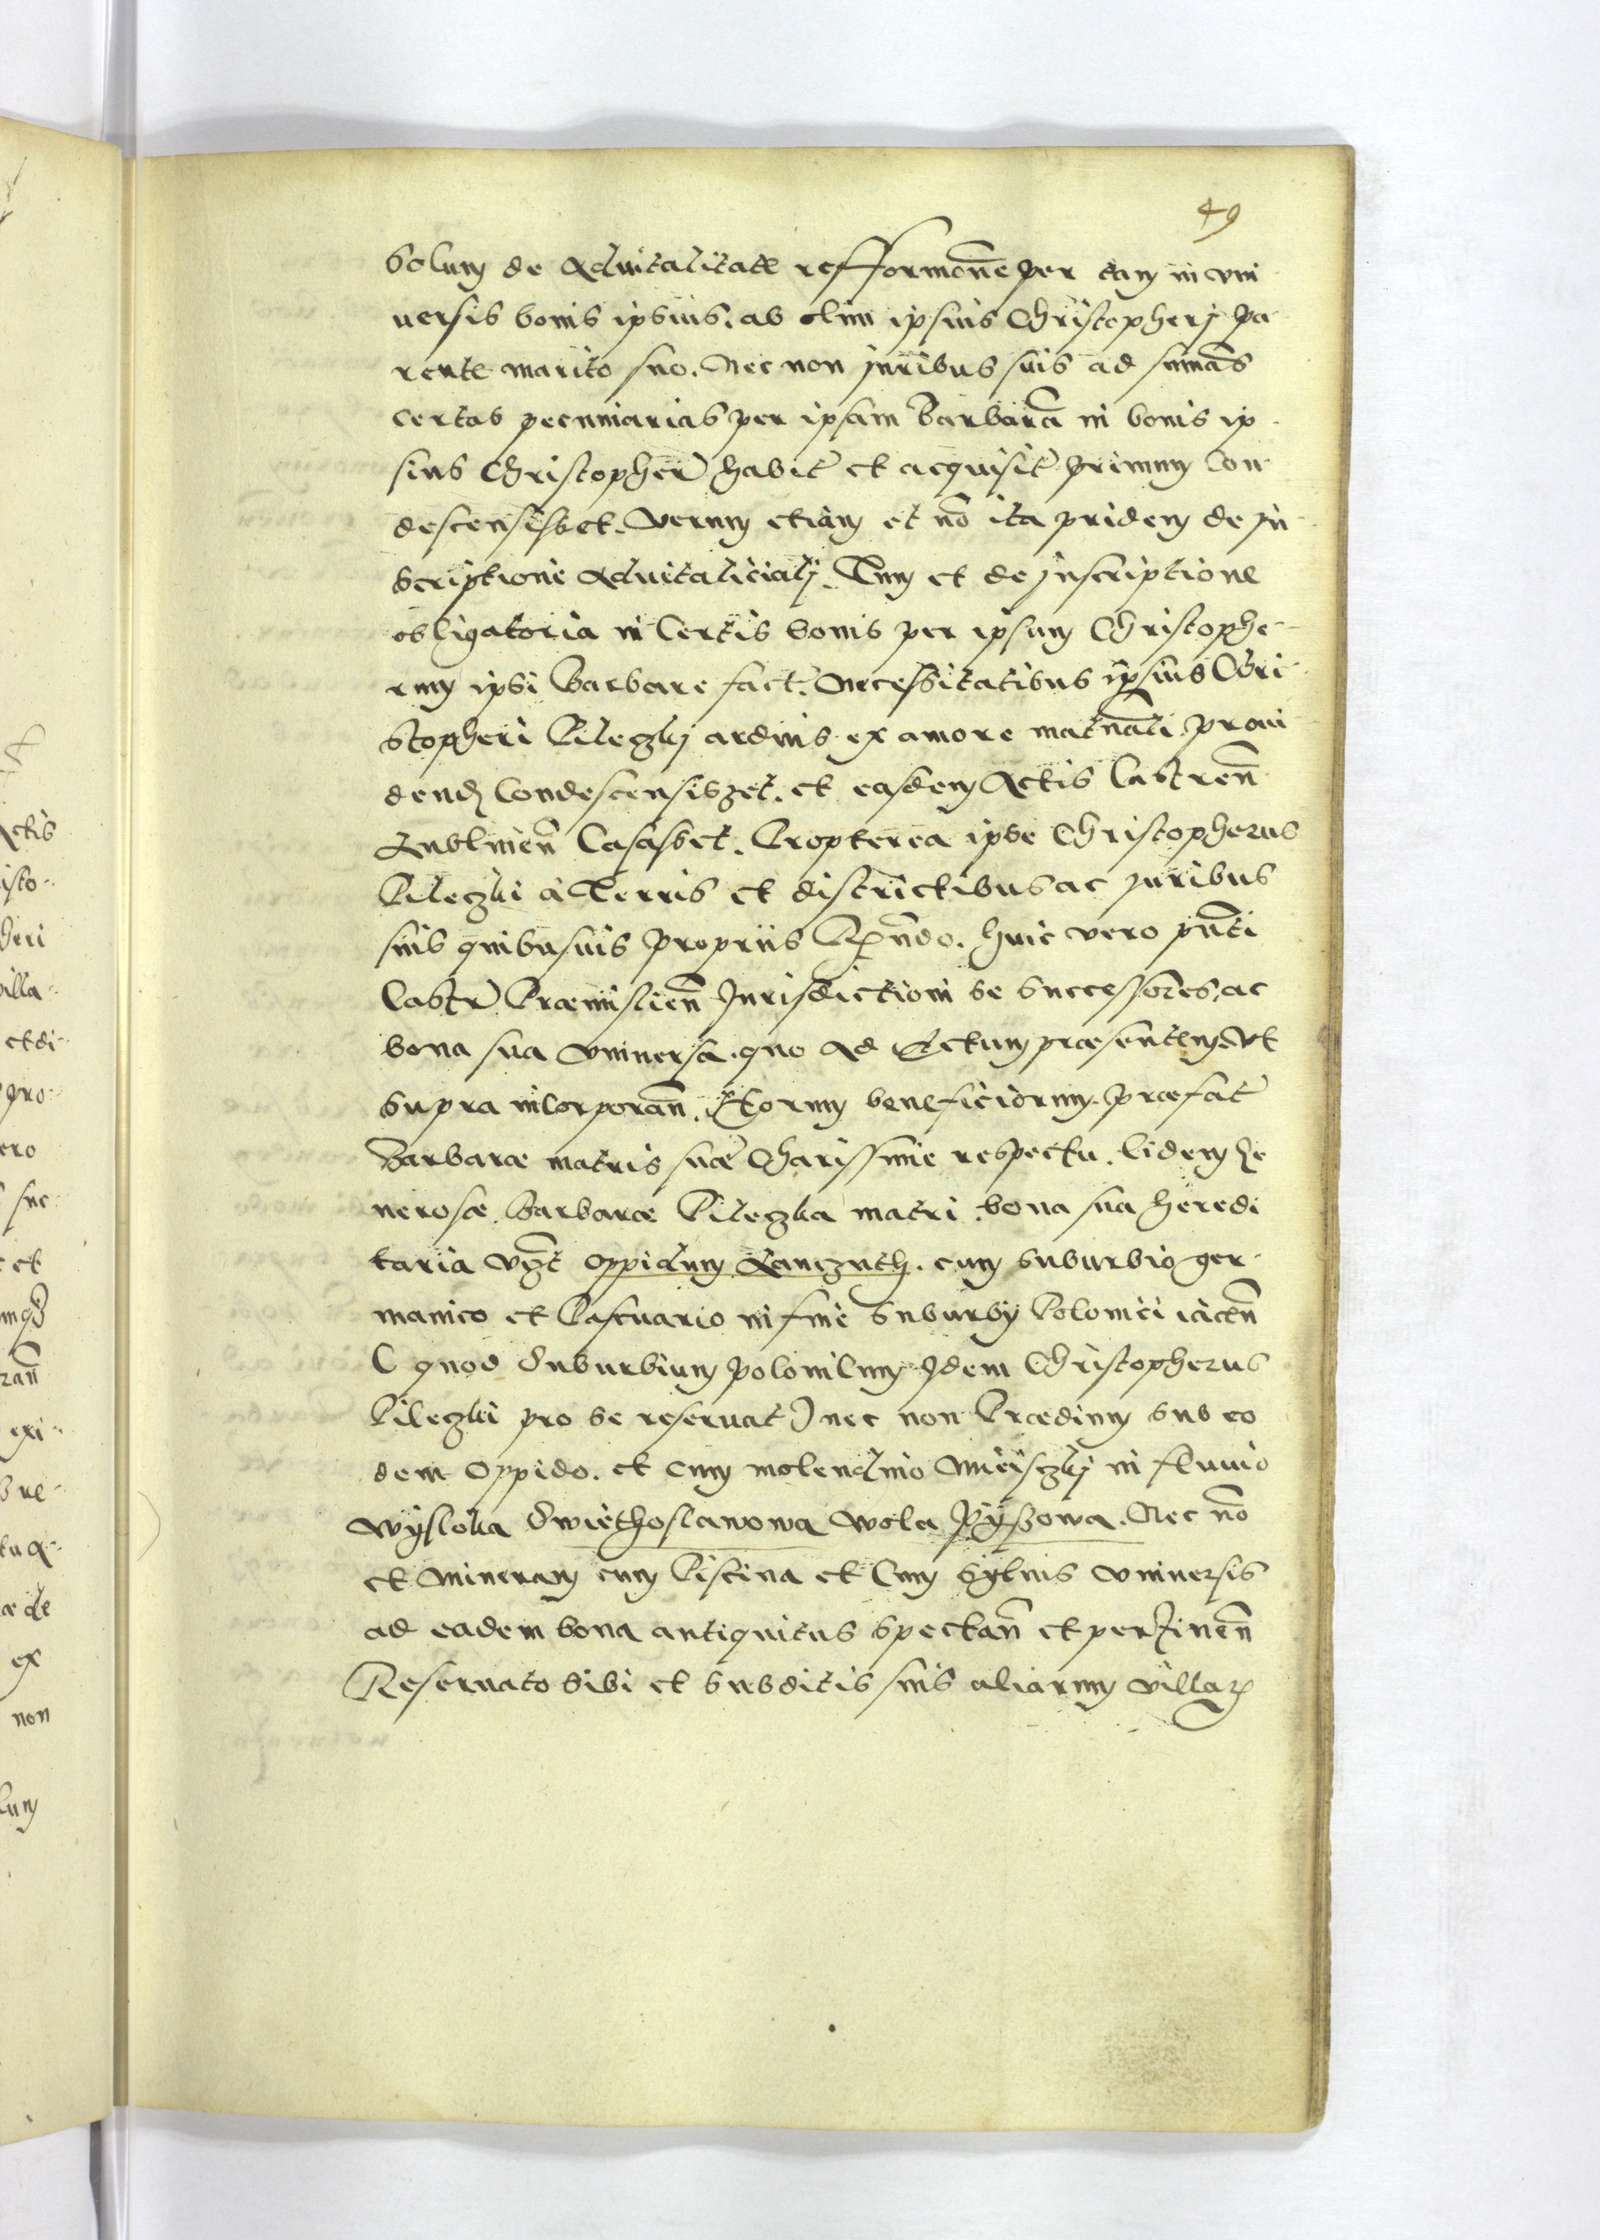 49
solum de Advitalitate refformõne per eam in vni
uersis bonis ipsius, ab olim ipsius Christopherj pa
rente marito suo. Nec non juribus suis ad sumãs
certas pecuniarias per ipsam Barbarã in bonis ip
sius Christopheri habit et acquisit primum Con
descensisset. Verum etiam et nõ ita pridem de in
scriptione Advitalicialj. Tum et de jnscriptione
obligatoria in Certis bonis per ipsum Christophe
rum ipsi Barbare fact. Necessitatibus ipsius Chri
stopheri Pileczkj arduis ex amore matnãli proui
dendo Condescensiszet. et easdem Actis Castreñ
Lublineñ Casasset. Propterea ipse Christopherus
Pileczki à Terris et districtibus ac juribus
suis quibusuis propriis Rñdo. huic vero pñti
Castr Præmislieñ Jurisdictioni se successores, ac
bona sua vniuersa quo ad Actum præsentem Vt
supra incorporañ. Etorum beneficiorum præfat
Barbaræ matris suæ Charissime respectu. Eidem Ge
nerosæ Barbaræ Pileczka matri bona sua heredi
taria vzt oppidum Lanczuth. cum suburbio ger
manico et Pascuario in fine suburbij Polonici iaceñ
( quod Suburbium polonicum Idem Christopherus
Pileczki pro se reseruat ) nec non Prædium sub eo
dem oppido. et cum molendino Mieisczkj in fluuio
Wysloka Swiethoslawowa Wola Pyszowa. Nec nõ
et Mineram cum Piscina et Cum syluis vniuersis
ad eadem bona antiquitus spectañ et pertineñ
Reseruato sibi et subditis suis aliarum villar